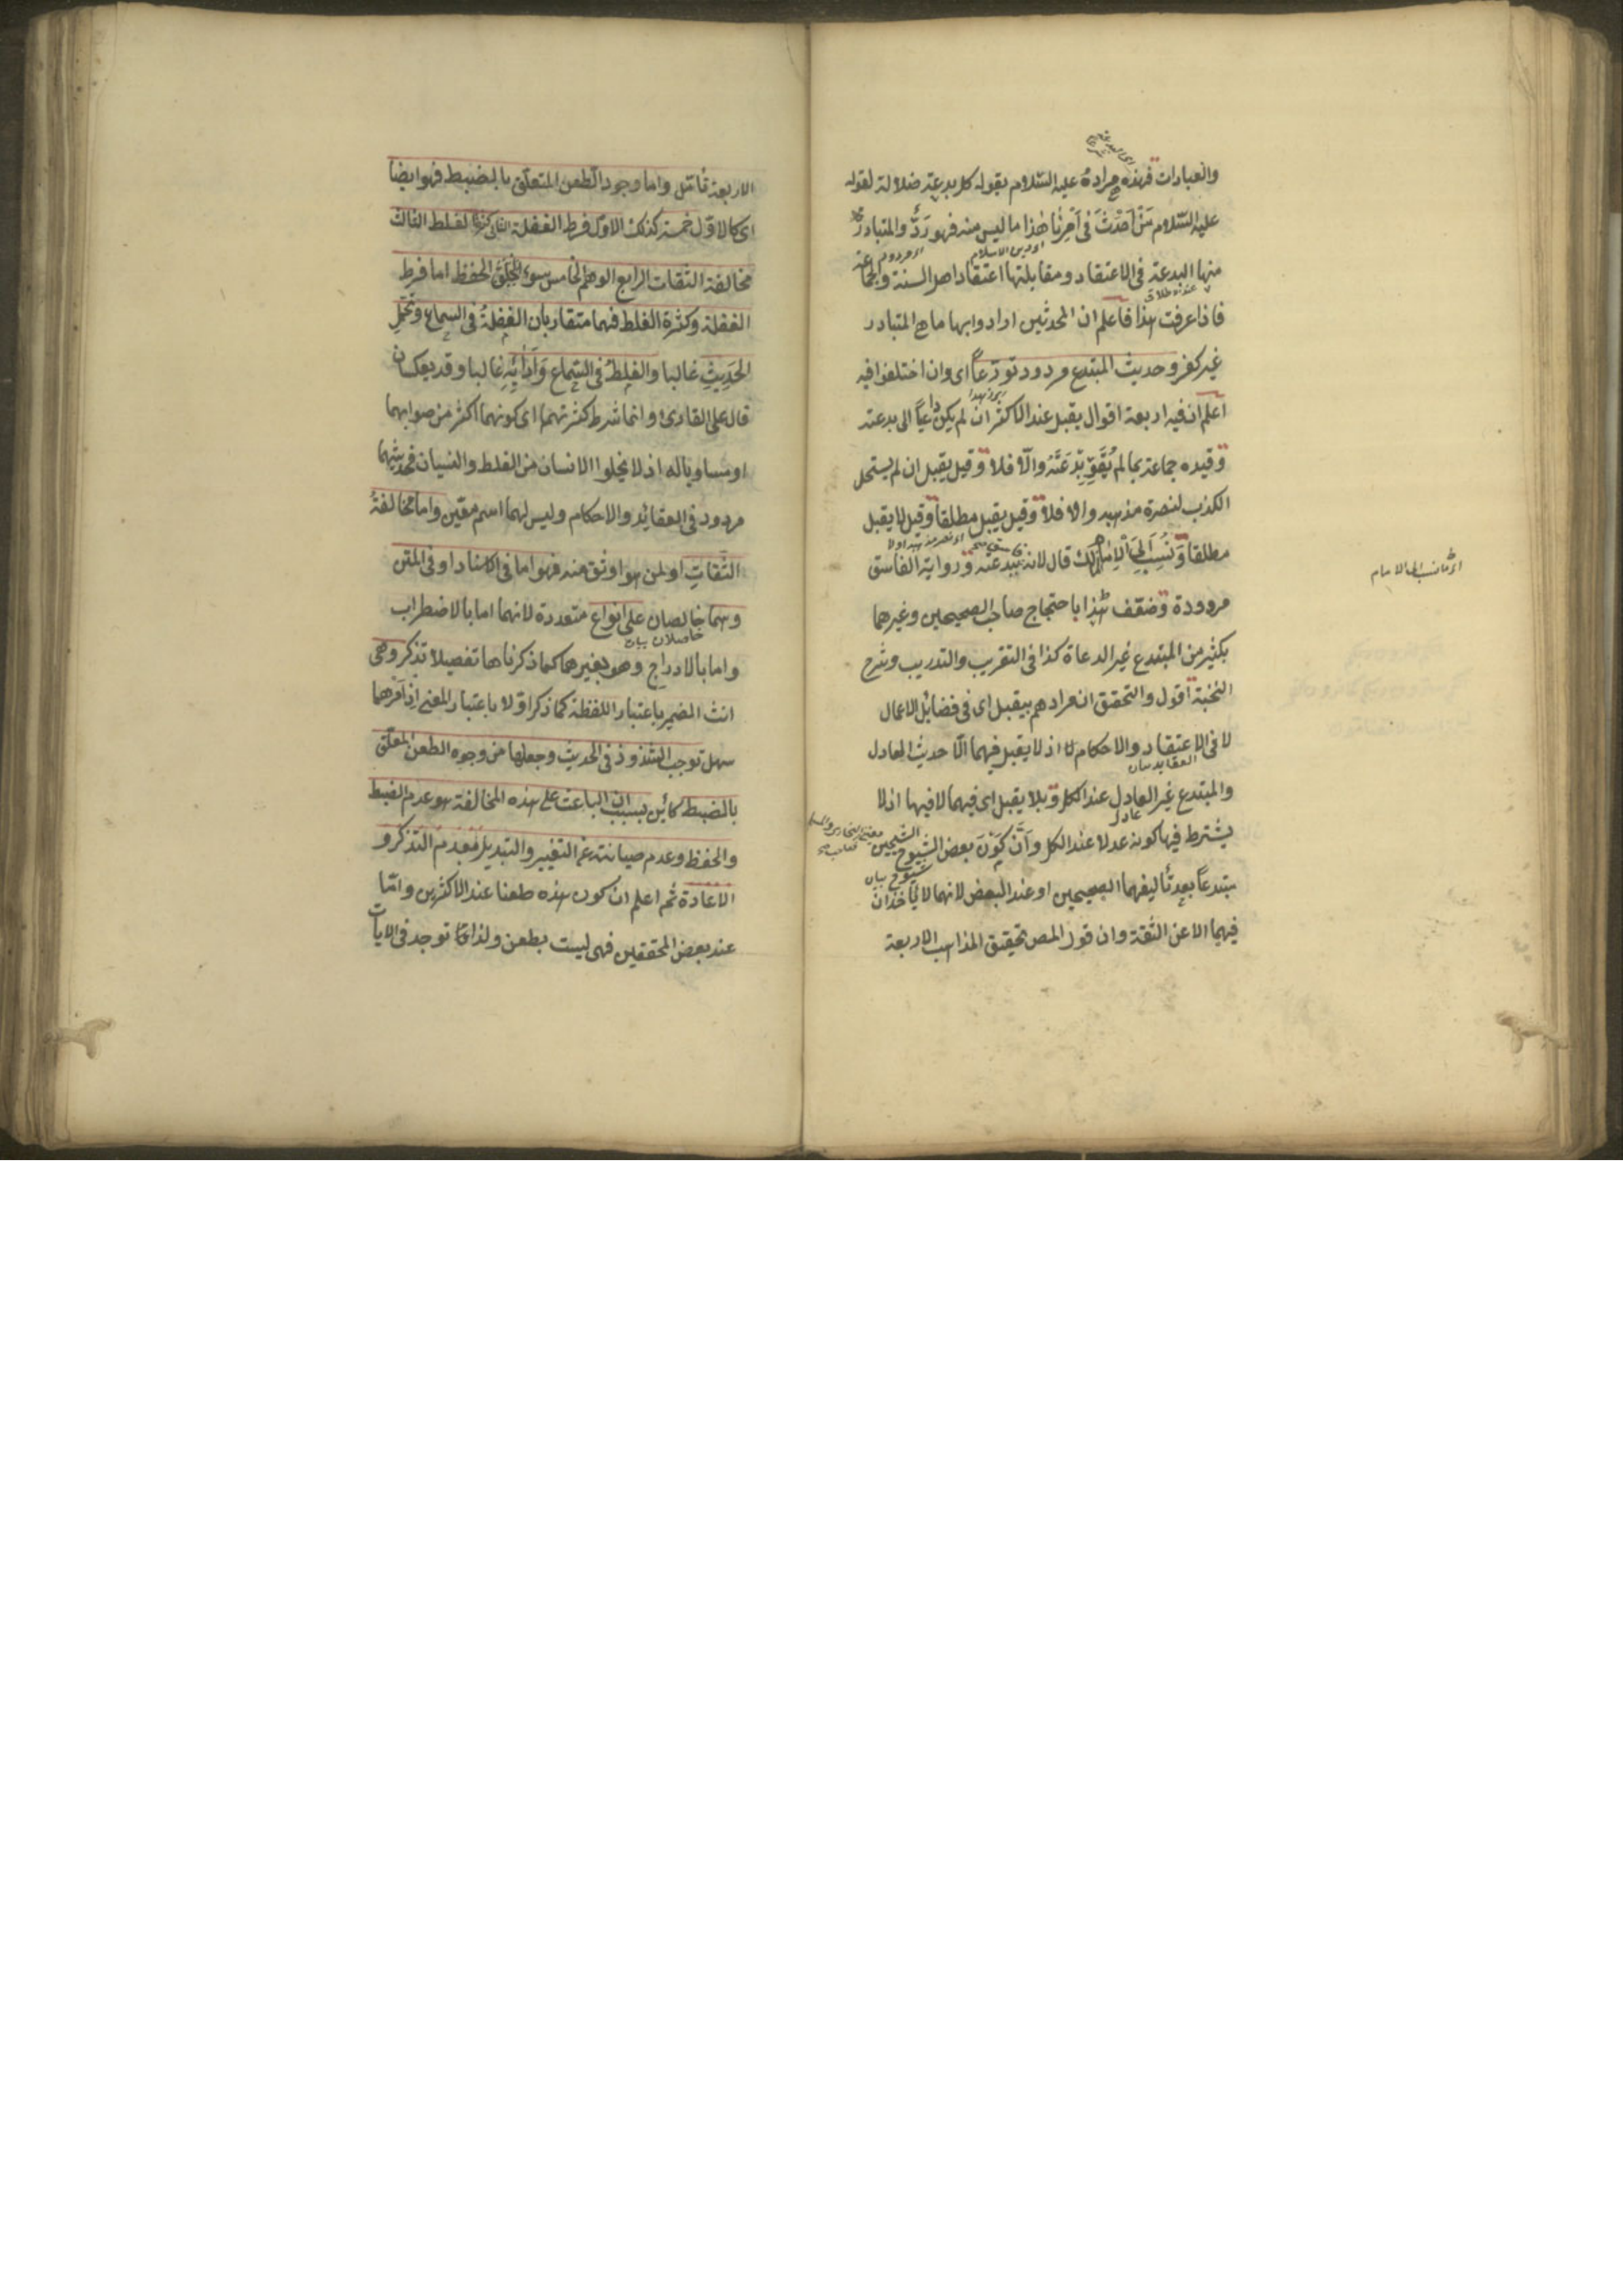 والعبادات فهذه مرادة عليه السّلام بقوله كل بدعة ضلالة لقوله
عليه السّلام مَنْ اَحْدَثَ فى اَمْرِنَا هٰذا ما ليس منه فهو رَدٌّ والمتبادر
منها البدعة فى الاعتقاد ومقابلتها اعتقاد اهل السنة والجماعة
فاذا عرفت هذا فاعلم ان المحدثين ارادوا بها ما هو المتبادر
غير كفر وحديث المبتدع مردود تورّعاً اى وان اختلفوا فيه
اعلم ان فيه اربعة اقوال يقبل عند الاكثر ان لم يكن داعياً الى بدعته
وقيده جماعة بما لم يُقَوِّ بِدْعَتَهُ والّا فلا وقيل يقبل ان لم يستحل
الكذب لنصرة مذهبه والا فلا وقيل يقبل مطلقا وقيل لا يقبل
مطلقا وَنُسِبَ اِلَى الْاِمَامِ مالك قال لانه ببدعته ورواية الفاسق
اى ما نسب الى الامام
مردودة وضعّف هذا باحتجاج صاحب الصحيحين وغيرهما
بكثير من المبتدع غير الدعاة كذا فى التقريب والتدريب وشرح
النخبة اقول والتحقق ان مرادهم بيقبل اى فى فضائل الاعمال
لا فى الاعتقاد والاحكام اذ لا يقبل فيهما الّا حديث العادل
والمبتدع غير العادل عند الكل وبلا يقبل اى فيهما لا فيها اذ لا
يشترط فيها كونه عدلا عند الكل وَاَنَّ كَوْنَ بعض الشيوخ الشيخين
مبتدعاً بعد تأليفهما الصحيحين او عند البعض لانهما لا يأخذان
فيهما الا عن الثقة وان قول المص تحقيق المذاهب الاربعة
الاربعة تأمّل واما وجود الطعن المتعلق بالضبط فهو ايضاً
اى كالاوّل خمسة كذلك الاوّل فرط الغفلة الثانى كثرة الغلط الثالث
مخالفة الثقات الرابع الوهم الخامس سوء الحفظ اما فرط
الغفلة وكثرة الغلط فهما متقاربان الغفلةُ فى السماع وتحمّلِ
الحَدِيثِ غالبا والغلطُ فى السماع وَاَدَائِهِ غالبا وقد يعكسان
قال على القارى وانما شرط كثرتهما اى كونهما اكثر من صوابهما
او مساويا له اذ لا يخلوا الانسان من الغلط والنسيان فحديثهما
مردود فى العقائد والاحكام وليس لهما اسم معيّن واما مخالفةُ
الثّقاتِ او لمن هو اوثق منه فهو اما فى الاسناد او فى المتن
وهما خالصان على انواع متعددة لانهما اما بالاضطراب
حاصلان بيان
واما بالادراج وهو بغيرهما كما ذكرناها تفصيلا تذكر وهى
انث الضمير باعتبار اللفظة كما ذكر اوّلا باعتبار المعنى اذ امرهما
سهل توجب الشذوذ فى الحديث وجعلها من وجوه الطعن المعلّق
بالضبط كائين بسبب ان الباعث على هذه المخالفة هو عدم الضبط
والحفظ وعدم صيانته عن التغيير والتبديل فبعدم التذكر و
الاعادة ثم اعلم ان كون هذه طعنا عند الاكثرين وامّا
عند بعض المحققين فهى ليست بطعن ولذا توجد فى الايات